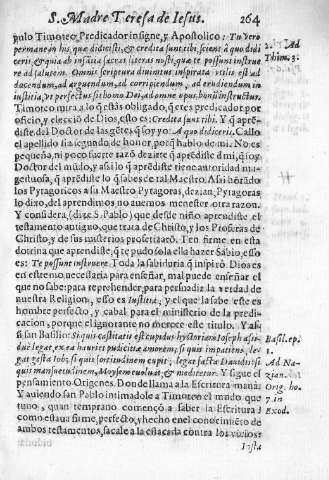 S. Madre Teresa de Iesus. 264
pulo Timoteo, Predicador insigne, y Apostolico: Tu vero
permane in his, quæ didicisti, & credita sunt tibi, sciens à quo didi
ceris, & quia ab infātia sacras literas nosti, quæ te possunt instrue
re ad salutem. Omnis scriptura divinitus inspirata vtilis est ad
docendum, ad arguendum, ad corripiendum, ad erudiendum in
iustitia, vt perfectus sit homo Dei, ad omne opus bonũ instructus.
Timoteo mira a lo q̃ estàs obligado, q̃ eres predicador por
oficio, y eleccion de Dios, esto es: Credita sunt tibi. Y q̃ aprē-
diste del Doctor de las gētes q̃ soy yo: A quo didiceris. Callo
el apellido i segundo, de honor, porq̃ hablo de mi. No es
pequeña, ni poco fuerte razõ dezirte q̃ aprēdiste d mi, q̃ soy
Doctor del mũdo, y assi lo q̃ aprēdiste tiene autoridad ma-
gestuosa, q̃ aprēdiste lo q̃ sabes de tal Maestro. Assi hõrado
los Pytagoricos a su Maestro Pytagoras, dezian, Pytagoras
lo dixo, del aprendimos no avemos menester otra razon.
Y considera (dize S. Pablo) que desde niño aprendiste el
testamento antiguo, que trata de Christo, y los Profetas de
Christo, y de sus misterios profetizarõ. Ten firme en esta
doctrina que aprendiste, q̃ te pudo sola ella hazer Sabio, esso
es: Te possunt instruere. Toda la sabiduria q̃ inspirò Dios es
en estremo necessaria para enseñar, mal puede enseñar el
que no sabe: para reprehender, para persuadir la verdad de
nuestra Religion, esso es iustitia, y el que la sabe este es
hombre perfecto, y cabal para el ministerio de la predi-
cacion, porque el ignorante no merece este titulo. Y assi
san Basilio: Si quis castitatis est cupidus hystoriam Ioseph assi-
due legat, ex ea hauriet pudicitiæ amorem; si quis impatiens, le-
gat gesta Iob; si quis fortitudinem cupit, legat facta Davidis; si
quis mansuetudinem, Moysem evoluat, & meditetur. Y sigue el
pensamiento Origenes. Donde llama a la Escritura manà:
Y auiendo san Pablo intimadole a Timoteo el modo que
tuuo, quan temprano començò a saber la Escritura
como estaua firme, perfecto, y hecho en el conocimiẽto de
ambos testamentos, sacale a la estacada contra los vicios:
Insta
2. Ad
Thim. 3.
Basil. ep.
1.
Ad Na-
zian.
Orig. ho.
7. in
Exod.